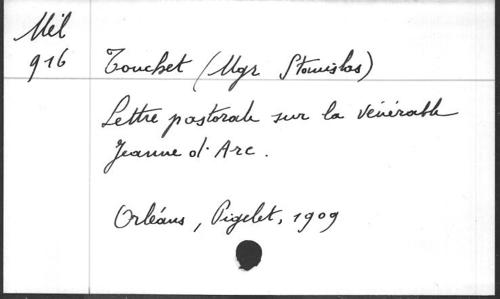 Mél
916
Touchet (Mgr Stanislas)
Lettre pastorale sur la vénérable
Jeanne d'Arc.
Orléans, Pigelet, 1909